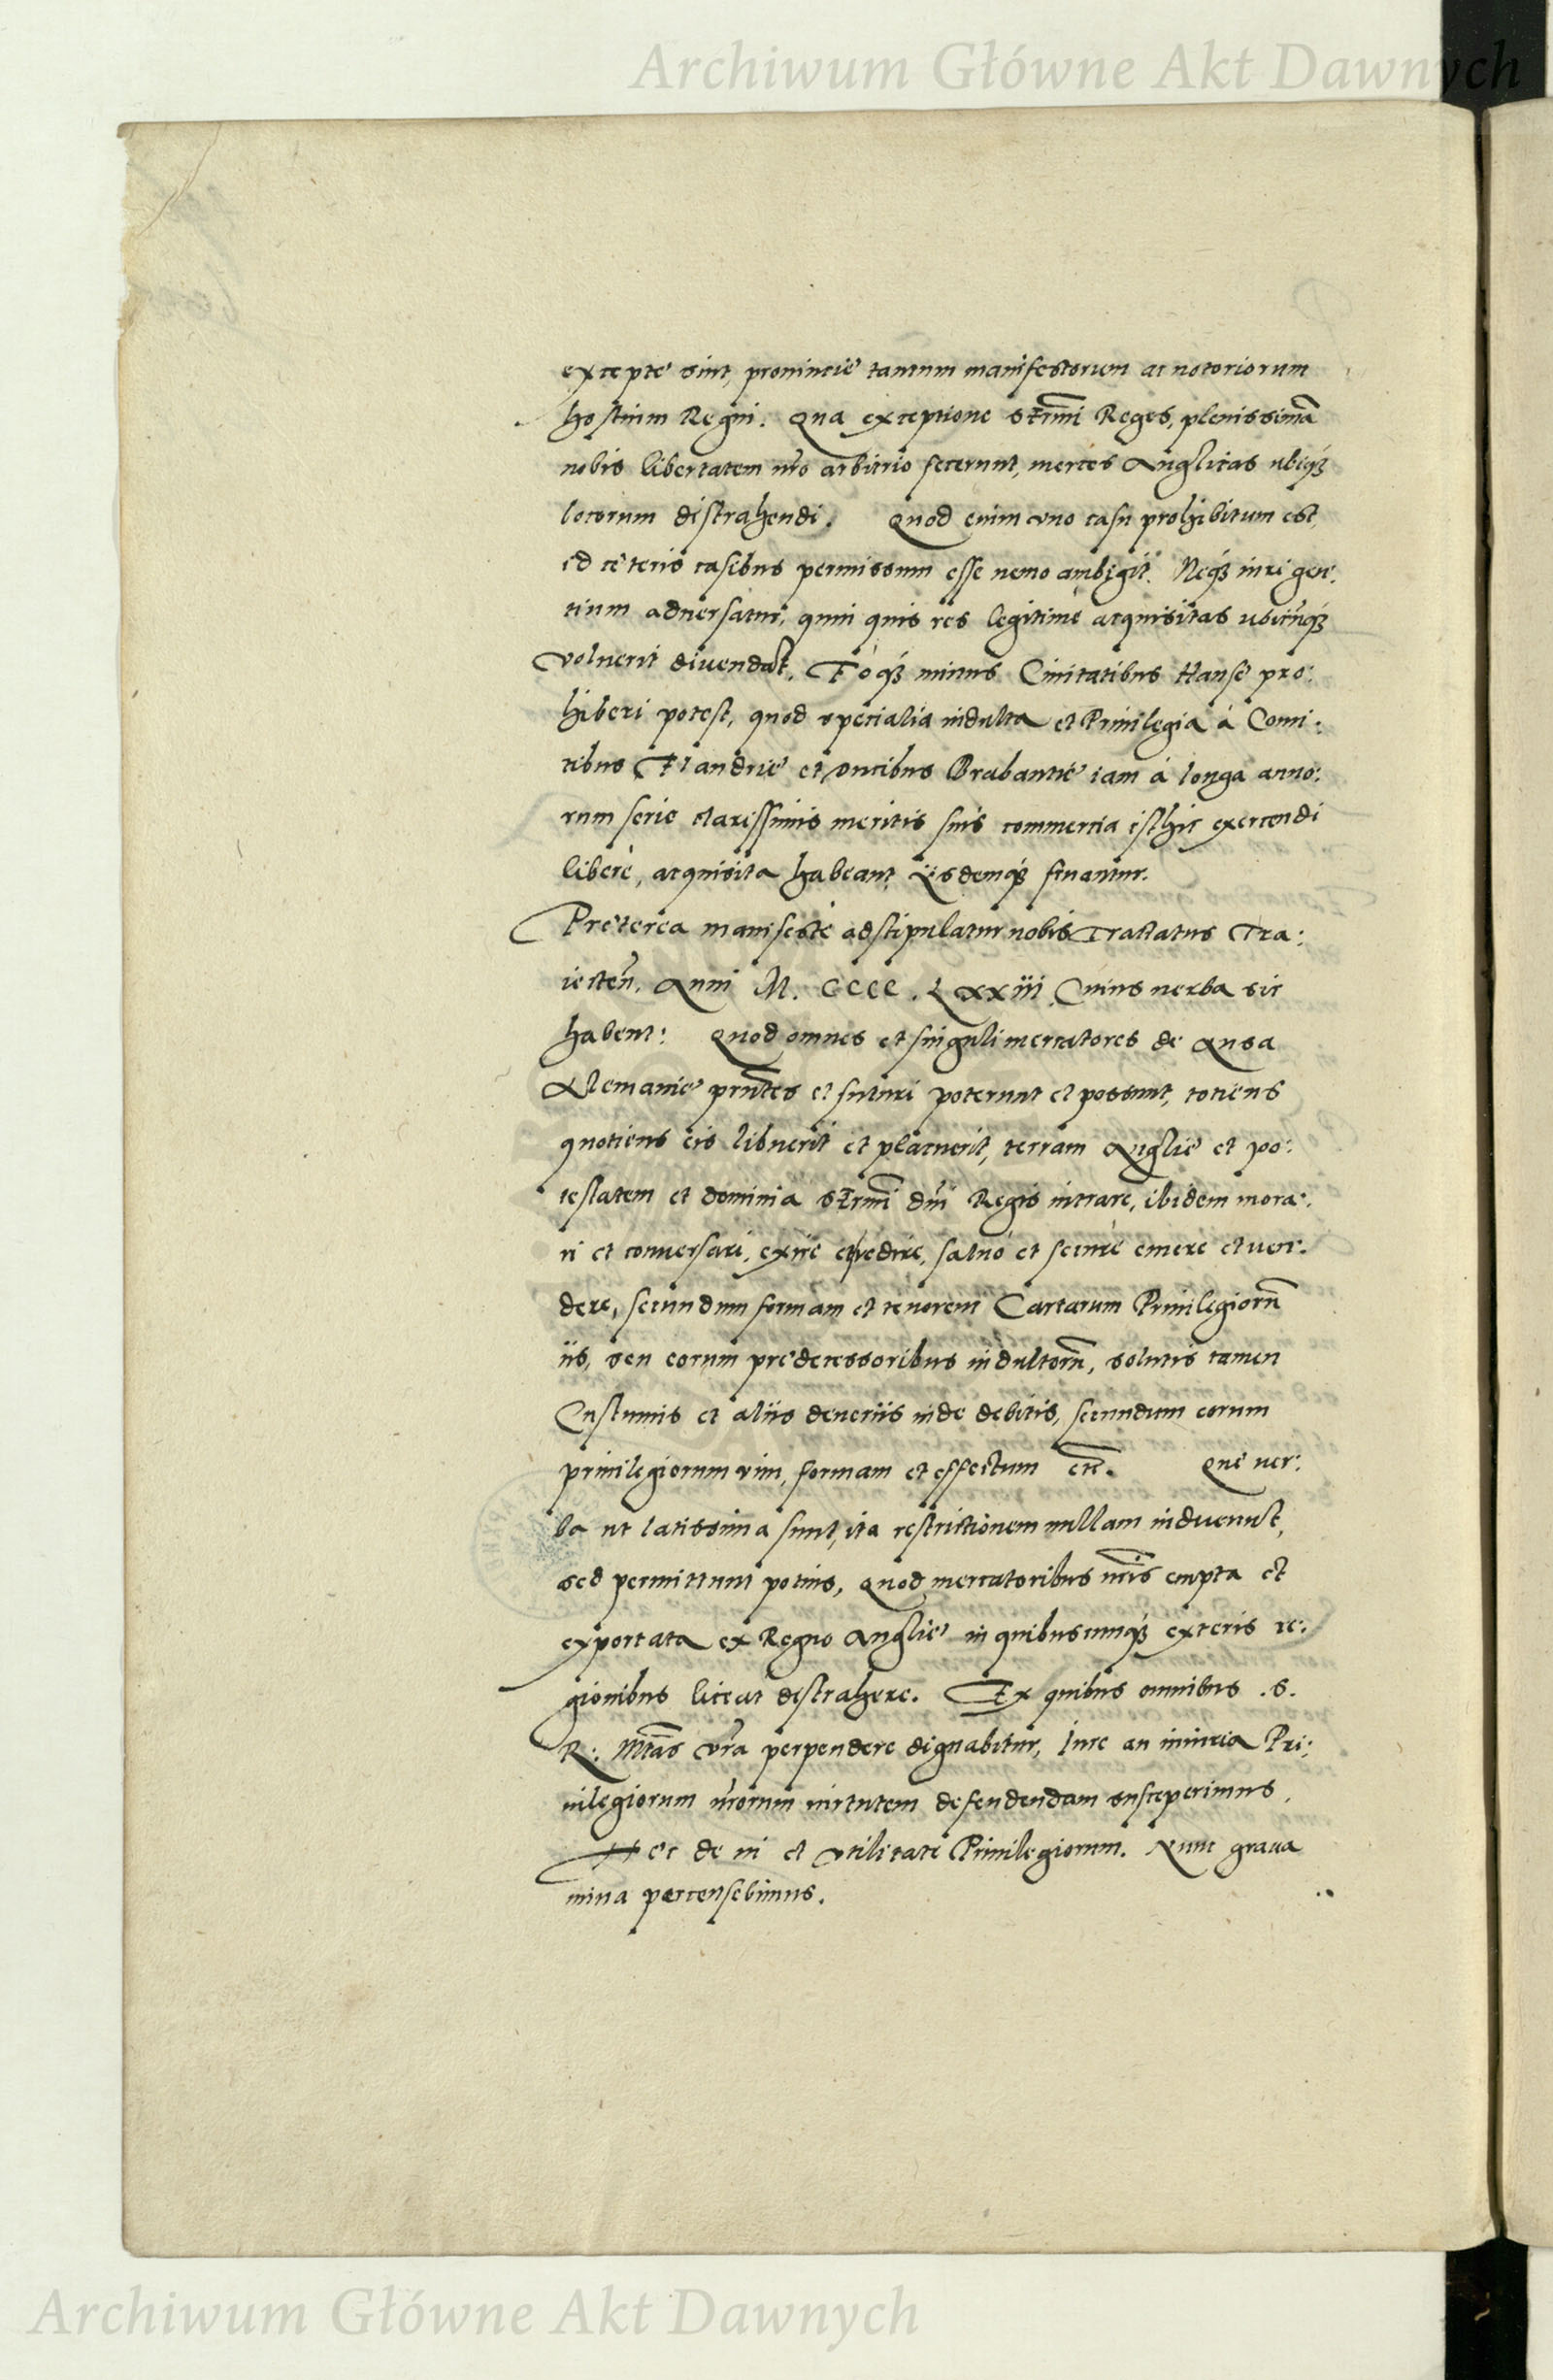 Archiwum Główne Akt Dawnych
exceptę sint, prouincię tantum manifestorum ac notoriorum
hostium Regni. Qua exceptione sErmi Reges, plenissimā
nobis libertatem nr̄o arbitrio fecerunt, merces Anglicas ubiq₃
locorum distrahendi. Quod enim vno casu prohibitum est,
id cęteris casibus permissum esse nemo ambigit. Neq₃ iuri gen:
tium aduersatur, quin quis res legitimè acquisitas ubicūq₃
voluerit diuendat. Eoq₃ minus Ciuitatibus Hansę pro:
hiberi potest, quod specialia indulta et Priuilegia à Comi:
tibus Flandrię et Ducibus Brabantię iam à longa anno:
rum serie clarissimis meritis suis commercia isthic exercendi
liberè, acquisita habeant, ijsdemq₃ fruantur.
Pręterea manifestè adstipulatur nobis Tractatus Tra:
iecten̄. Anni M. CCCC. Lxxiii Cuius uerba sic
habent: Quod omnes et singuli mercatores de Ansa
Alemanię pn̄tes et futuri poterunt et possunt, totiens
quotiens eis libuerit et placuerit, terram Anglię et po:
testatem et dominia sErmi dn̄i Regis intrare, ibidem mora:
ri et conuersari, exire et redire, saluò et securè emere et uen:
dere, secundum formam et tenorem Cartarum Priuilegiorū
iis, seu eorum prędecessoribus indultorū, solutis tamen
Custumis et aliis deueriis inde debitis, secundum eorum
priuilegiorum vim, formam et effectum etc̄. Quę uer:
ba ut latissima sunt, ita restrictionem nullam inducunt,
sed permittunt potius, quod mercatoribus nr̄is empta et
exportata ex Regno Anglię in quibuscunq₃ exteris re:
gionibus liceat distrahere. Ex quibus omnibus .S.
R: Mtas vr̄a perpendere dignabitur, Iure an iniuria Pri:
uilegiorum nr̄orum uirtutem defendendam susceperimus.
Hęc de ui et vtilitate Priuilegiorum. Nunc graua
mina percensebimus.
Archiwum Główne Akt Dawnych